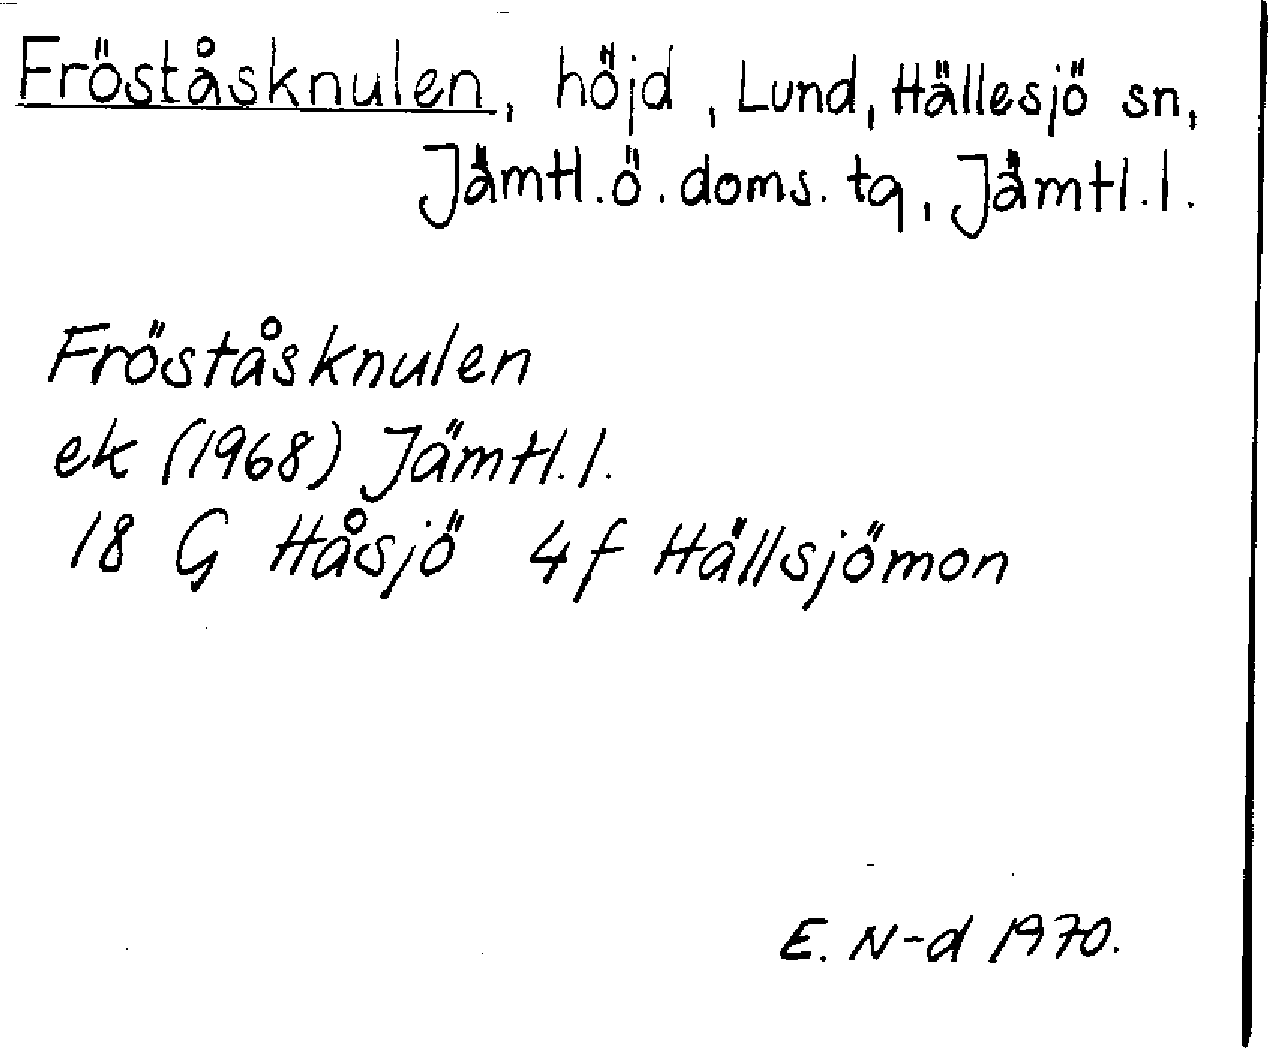 Fröståsknulen, höjd, Lund, Hällesjö sn,
Jämtl. ö. doms. tg, Jämtl. l.
Fröståsknulen
ek (1968) Jämtl. l.
18 G Håsjö 4f Hällsjömon
E. N-d 1970.